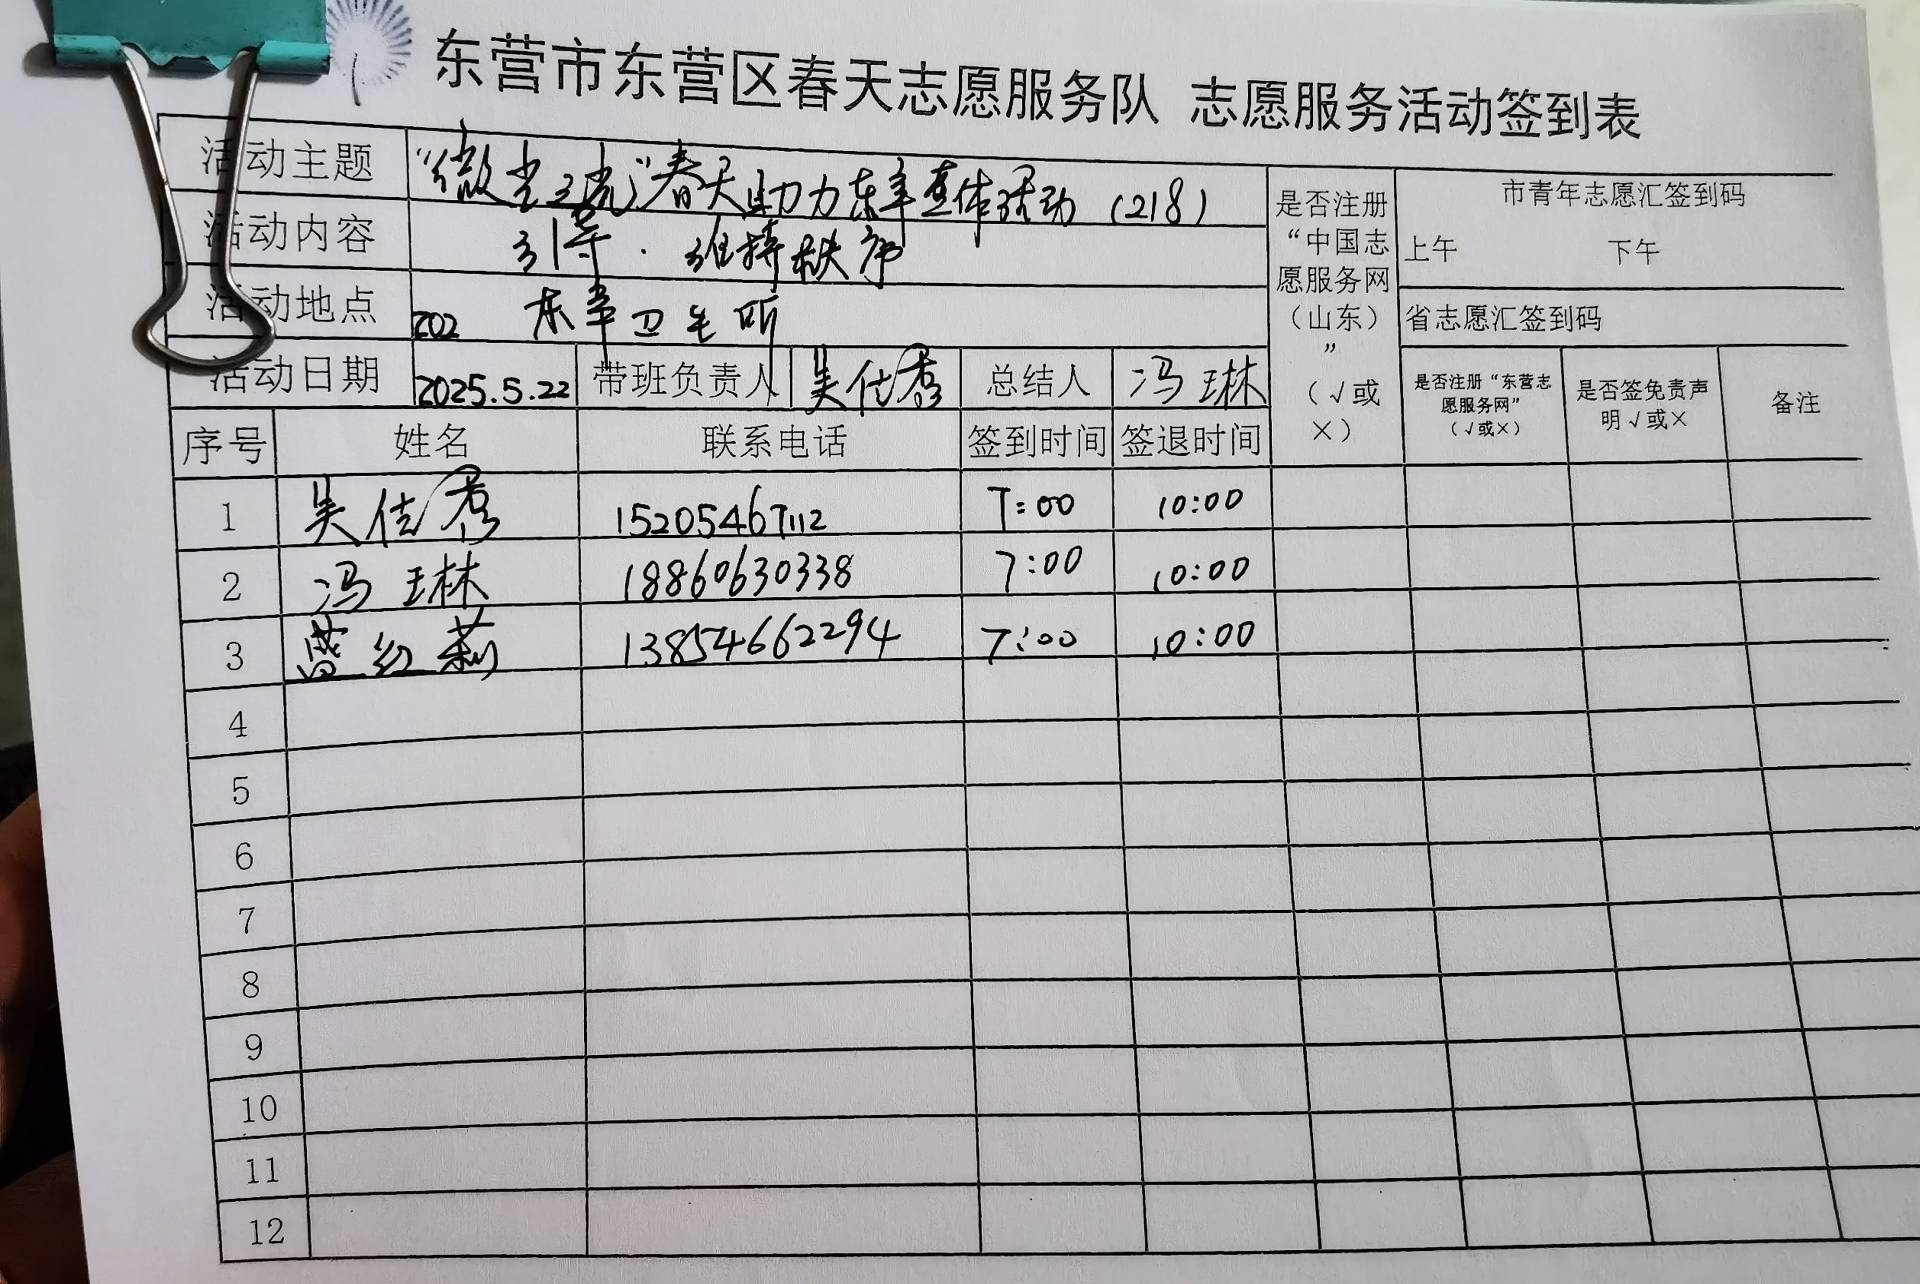 东营市东营区春天志愿服务队 志愿服务活动签到表
活动主题 “微尘之光”春天助力东辛查体活动（218）
活动内容 引导·维持秩序
活动地点 202 东辛卫生所
活动日期 2025.5.22 带班负责人 吴佳秀 总结人 冯琳
是否注册“中国志愿服务网（山东）”（√或×）
市青年志愿汇签到码
上午 下午
省志愿汇签到码
是否注册“东营志愿服务网”（√或×） 是否签免责声明√或× 备注
序号 姓名 联系电话 签到时间 签退时间
1 吴佳秀 15205467112 7:00 10:00
2 冯琳 18860630338 7:00 10:00
3 红莉 13854662294 7:00 10:00
4
5
6
7
8
9
10
11
12